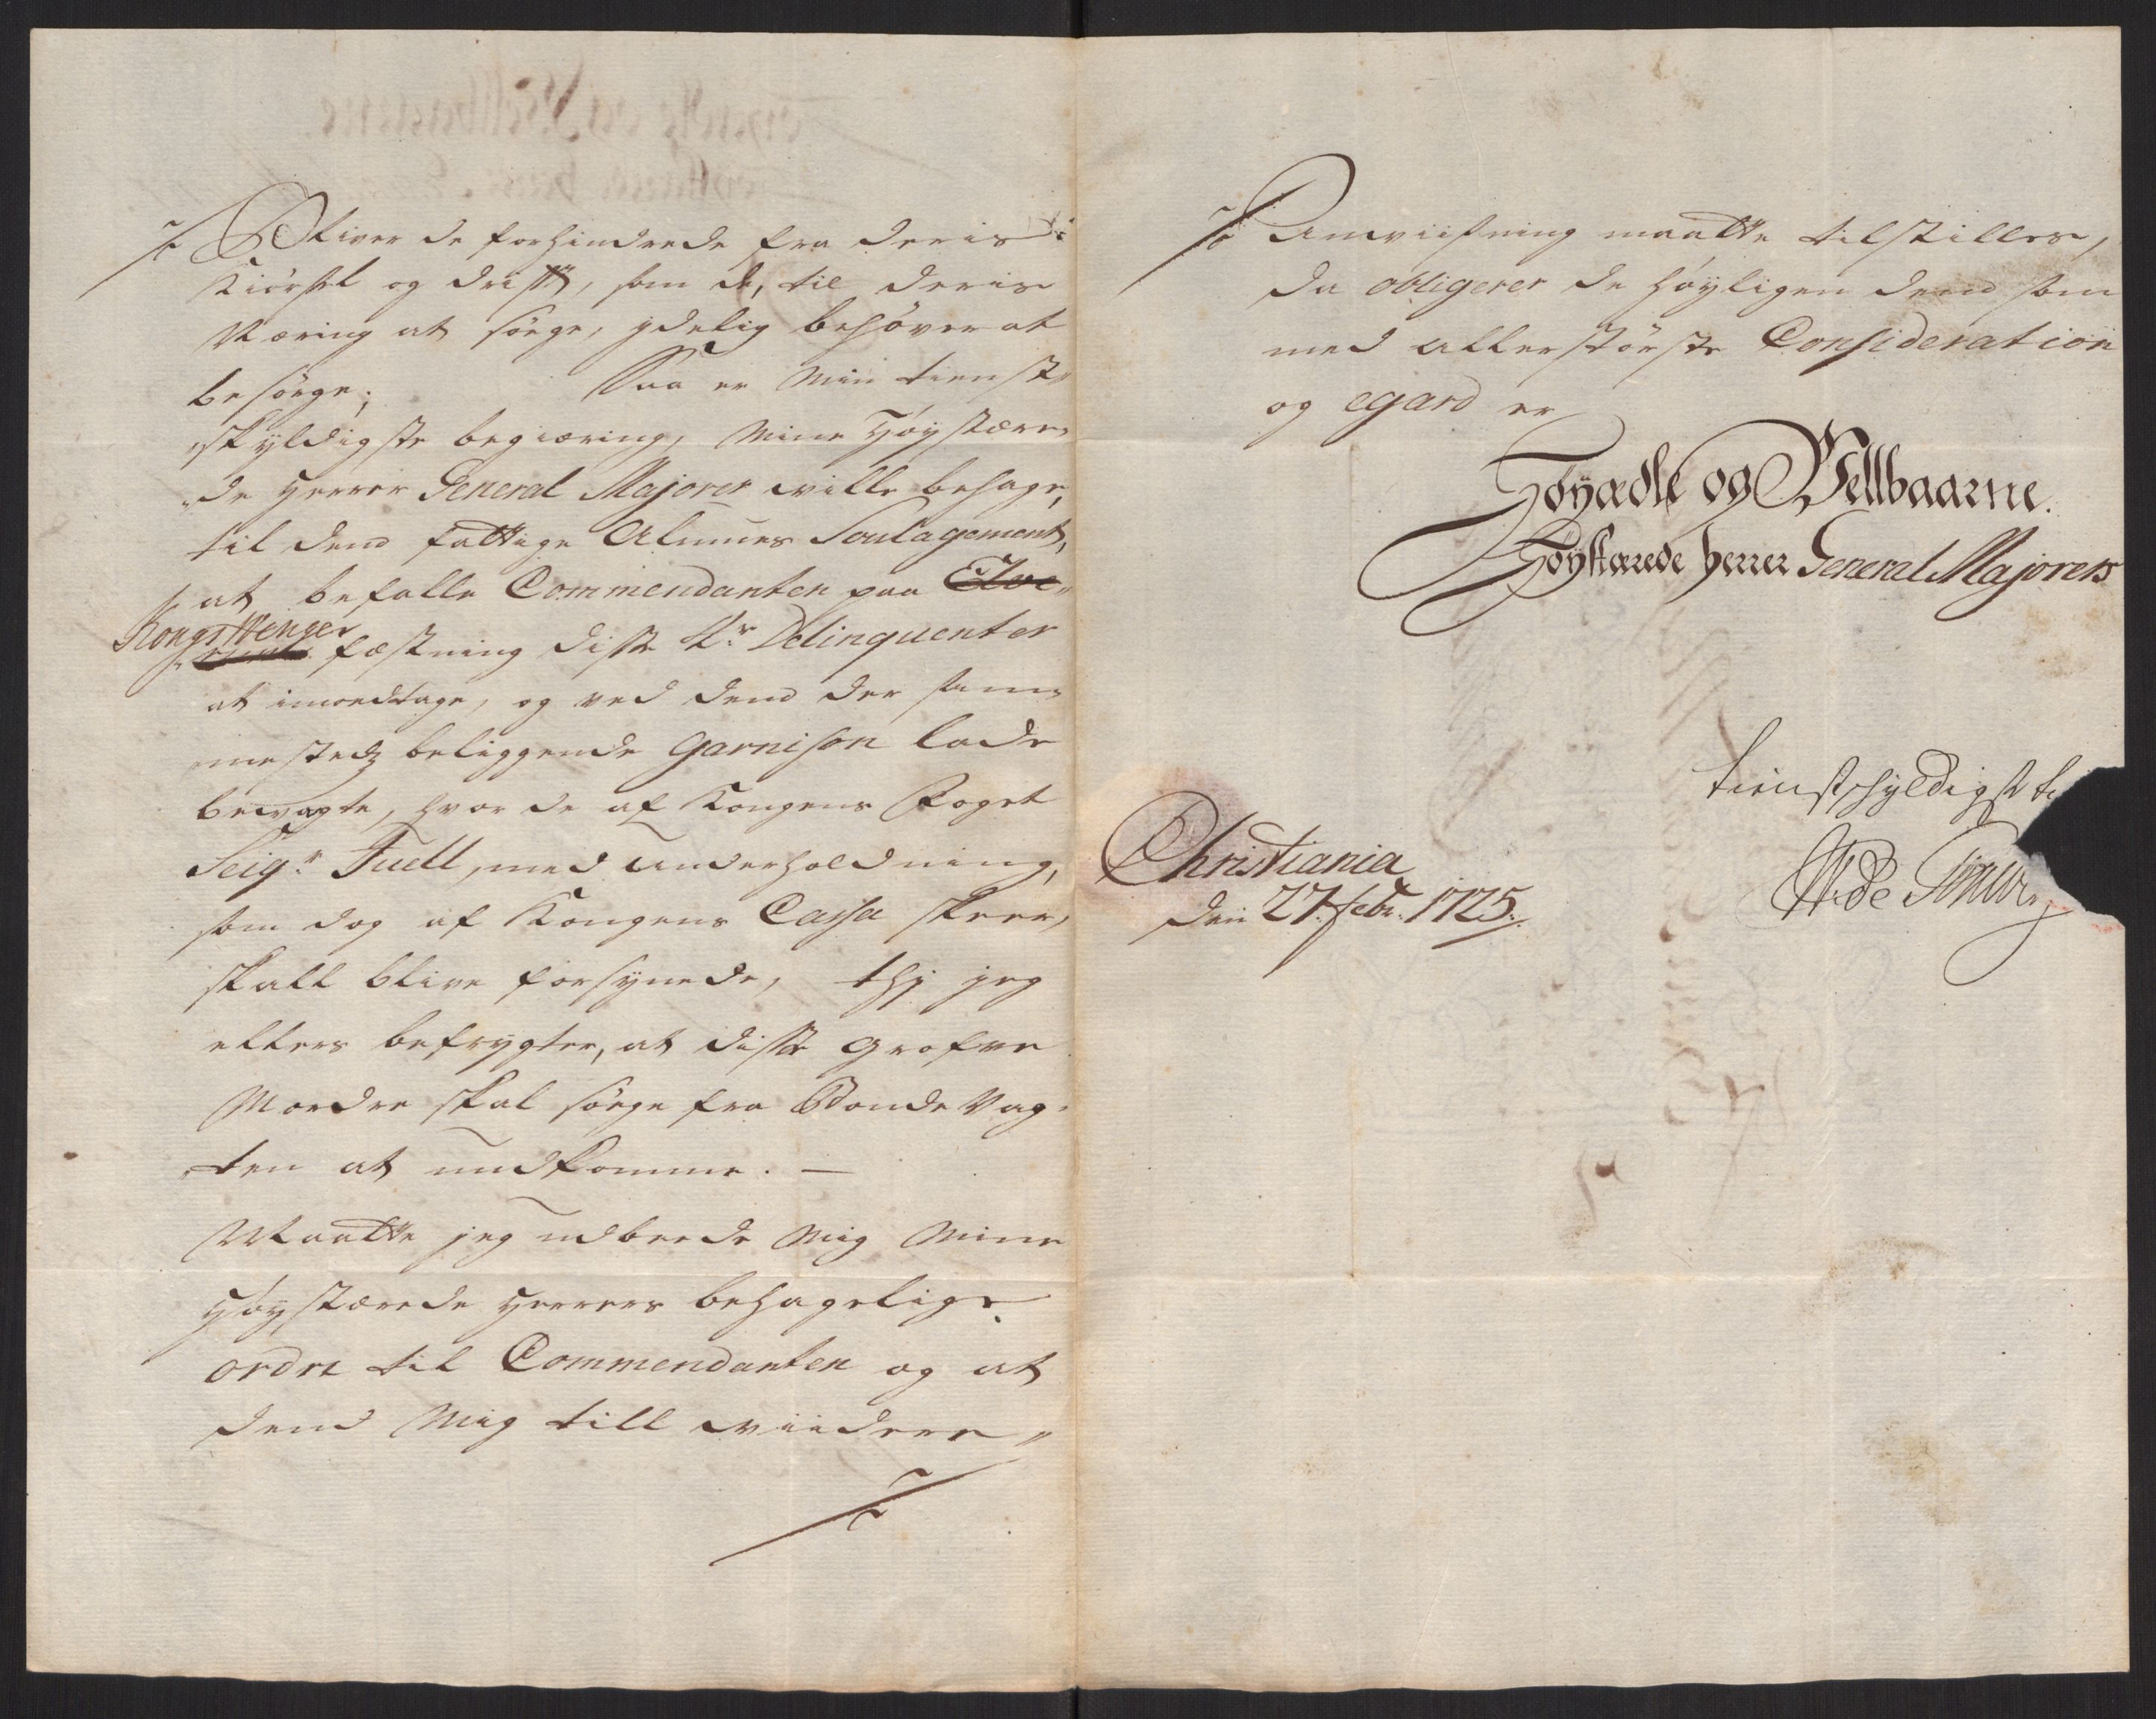 /: Bliver de forhindrede fra deris
Kiörsel og drifft, som de, til deris
Næring at söge, ydelig behöver at
besörge; Saa er Min tienst„
„skyldigste begiæring, Mine Höystære„
„de Herrer General Majorer wille behage,
til dend fattige Almues Soulagement,
at befalle Commendanten paa Elve„
Kongs Wenger
fæstning disse 4r Delinquenter
at imodtage, og ved dend der sam„
mestedz beliggende Garnison lade
bewagte, hvor de af Kongens Foget
Seigr. Juell, med Underholdning,
som dog af Kongens Cassa skeer,
skall blive forsynede, thj jeg
ellers befrygter, at disse grofve
Mordre skal söge fra Bonde Vag„
„ten at undkomme. —
Maatte jeg udbeede Mig Mine
Höystærede Herrers behagelige
ordre til Commendanten og at
dend Mig till wiidere„
/:
/: Anwiisning maatte tilstilles,
da obligerer de höyligen dend som
med allerstörste Consideration
og egard er
Höyædle og Wellbaarne.
Höystærede herrer General Majorers
Christiania
den 27. Febr. 1725.
tienstskyldigste
de